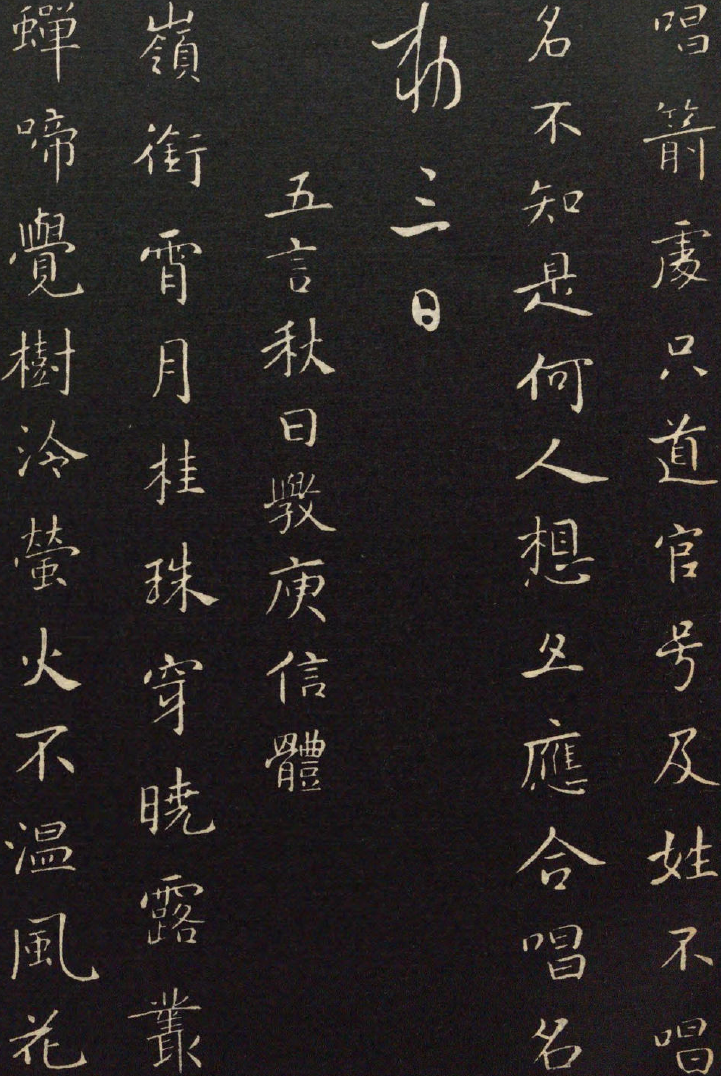 唱箭處只道官号及姓不唱
名不知是何人想㸦應合唱名
勅 三日
五言秋日斅庾信體
嶺銜霄月桂珠穿曉露叢
蟬啼覺樹冷螢火不温風花